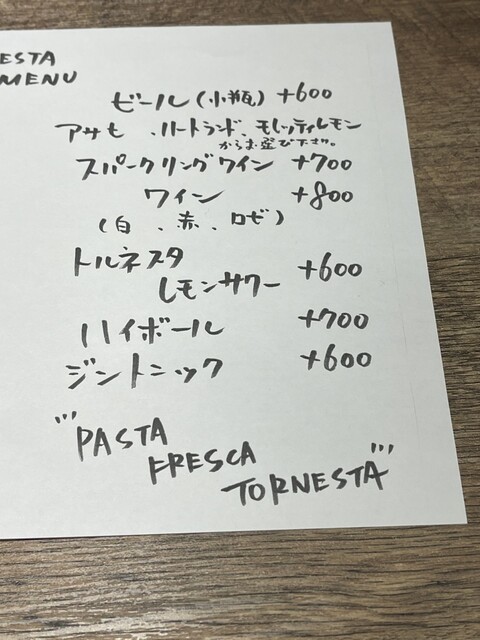 ESTA
MENU
ビール(小瓶) +600
アサヒ 、ハートランド、モレッティレモン
からお選び下さい。
スパークリングワイン +700
ワイン +800
(白 、赤、ロゼ)
トルネスタ
レモンサワー +600
ハイボール +700
ジントニック +600
PASTA
FRESCA
TORNESTA